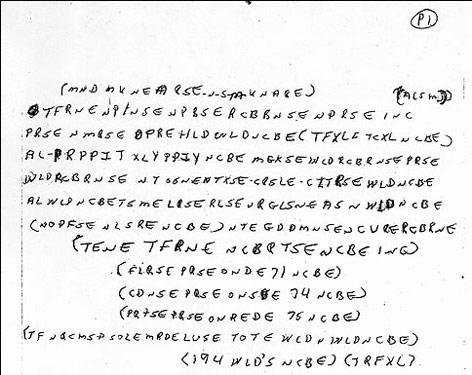 P1
(MND MKNEARSE-N-STA-KNARE) (ACSM.))
TFRNENPINSENPRSERCBRNSENPRSEINC
PRSENMRSEOPREHLDWLDNCBE(TFXLFTCXLNCBE)
AL-PRPPITXLYPPIYNCBEMGKSEWLDRCBRNSEPRSE
WLDRCBRNSENTSGNENTXSE-CRSLE-CITRSEWLDNCBE
ALWLDNCBETSMELRSERLSENRGLSNEASNWLDNCBE
(NOPFSENLSRENCBE)NTEGDDMNSENCURERCBRNE
(TENE TFRNE NCBRTSENCBE ING)
(FLRSE PRSE ONDE 71 NCBE)
(CDNSE PRSE ONSDE 74 NCBE)
(PRTSE PRSE ONREDE 75 NCBE)
(TFNQCMSPSOLEMRDELUSE TOTE WLDN WLDNCBE)
(194 WLD'S NCBE) (TRFXL)